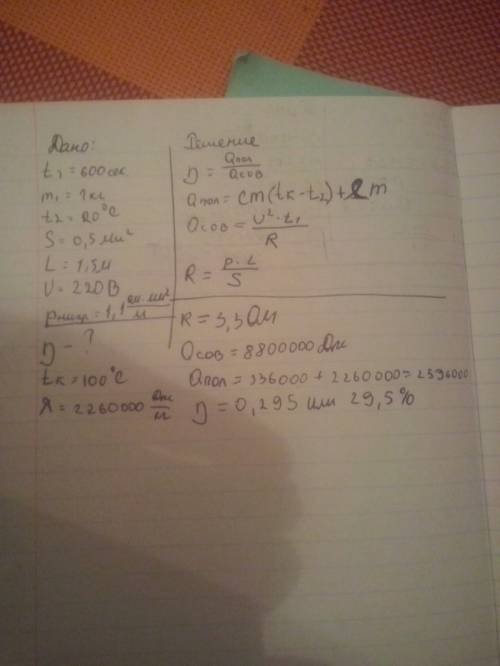 Дано:
t₁ = 600 сек
m₁ = 1 кг
t₂ = 20°C
S = 0,5 мм²
L = 1,5 м
U = 220 В
ρнихр = 1,1 Ом·мм²/м
η - ?
tк = 100°C
λ = 2260000 Дж/м
Решение
η = Qпол/Qсов
Qпол = cm(tк - t₂) + Lm
Qсов = U²·t₁/R
R = ρ·L/S
R = 3,3 Ом
Qсов = 8800000 Дж
Qпол = 336000 + 2260000 = 2596000
η = 0,295 или 29,5%